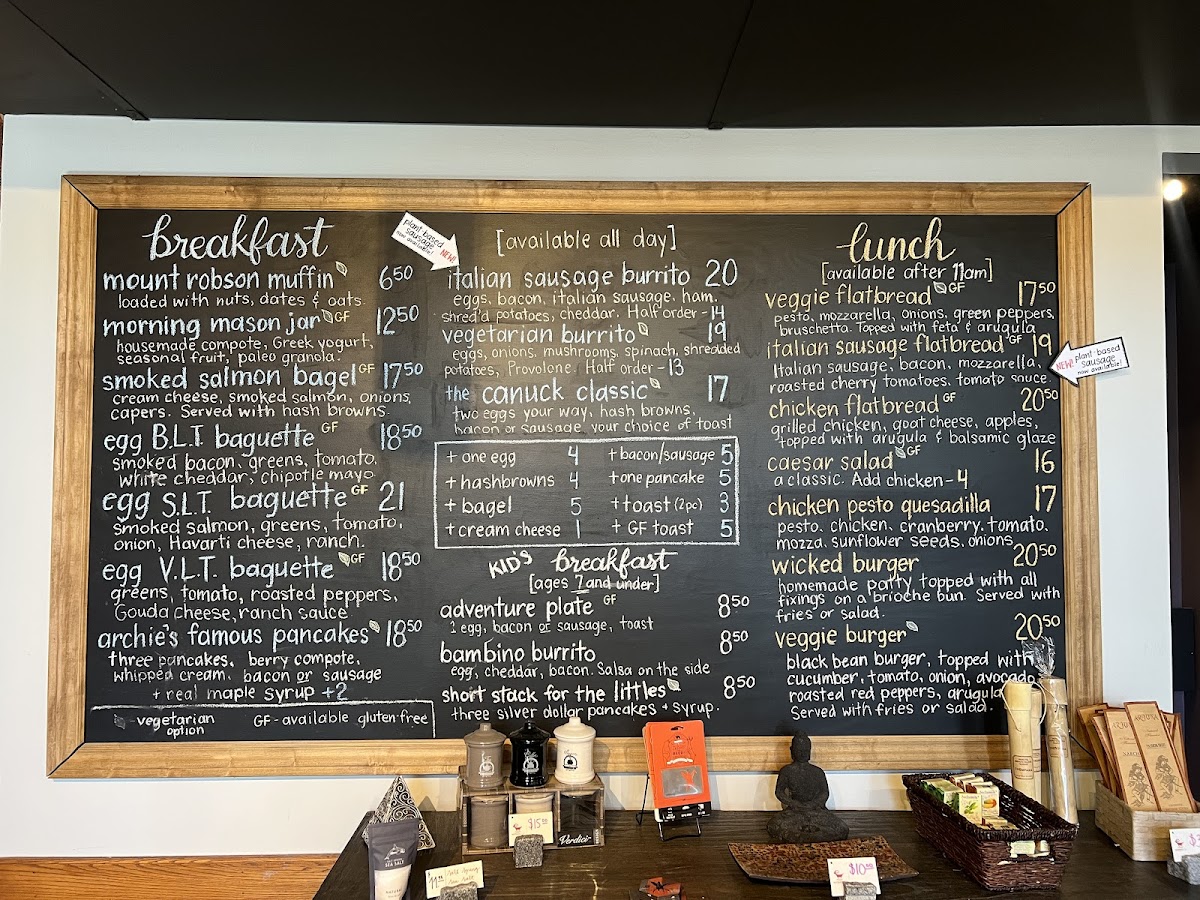 breakfast
mount robson muffin 6.50
loaded with nuts, dates & oats.
morning mason jar GF 12.50
housemade compote, Greek yogurt,
seasonal fruit, paleo granola.
smoked salmon bagel GF 17.50
cream cheese, smoked salmon, onions,
capers. Served with hash browns.
egg B.L.T. baguette GF 18.50
smoked bacon, greens, tomato,
white cheddar, chipotle mayo
egg S.L.T. baguette GF 21
smoked salmon, greens, tomato,
onion, Havarti cheese, ranch.
egg V.L.T. baguette GF 18.50
greens, tomato, roasted peppers,
Gouda cheese, ranch sauce
archie's famous pancakes 18.50
three pancakes, berry compote,
whipped cream. bacon or sausage
+ real maple syrup +2
- vegetarian option
GF - available gluten free
plant-based
sausage
now available!
NEW!
[available all day]
italian sausage burrito 20
eggs, bacon, italian sausage, ham,
shred'd potatoes, cheddar. Half order - 14
vegetarian burrito 19
eggs, onions, mushrooms, spinach, shredded
potatoes, Provolone. Half order - 13
the canuck classic 17
two eggs your way, hash browns,
bacon or sausage, your choice of toast
+ one egg 4
+ hashbrowns 4
+ bagel 5
+ cream cheese 1
+ bacon/sausage 5
+ one pancake 5
+ toast (2pc) 3
+ GF toast 5
KID'S breakfast
[ages 7 and under]
adventure plate GF 8.50
1 egg, bacon or sausage, toast
bambino burrito 8.50
egg, cheddar, bacon. Salsa on the side
short stack for the littles 8.50
three silver dollar pancakes + syrup.
lunch
[available after 11am]
veggie flatbread GF 17.50
pesto, mozzarella, onions, green peppers,
bruschetta. Topped with feta & arugula
italian sausage flatbread GF 19
Italian sausage, bacon, mozzarella,
roasted cherry tomatoes, tomato sauce.
NEW! plant-based
sausage
now available!
chicken flatbread GF 20.50
grilled chicken, goat cheese, apples,
topped with arugula & balsamic glaze
caesar salad GF 16
a classic. Add chicken - 4
chicken pesto quesadilla 17
pesto, chicken, cranberry, tomato,
mozza, sunflower seeds, onions
wicked burger 20.50
homemade patty topped with all
fixings on a brioche bun. Served with
fries or salad.
veggie burger 20.50
black bean burger, topped with
cucumber, tomato, onion, avocado
roasted red peppers, arugula
Served with fries or salad.
$15
Verdici
SEA SALT
$10